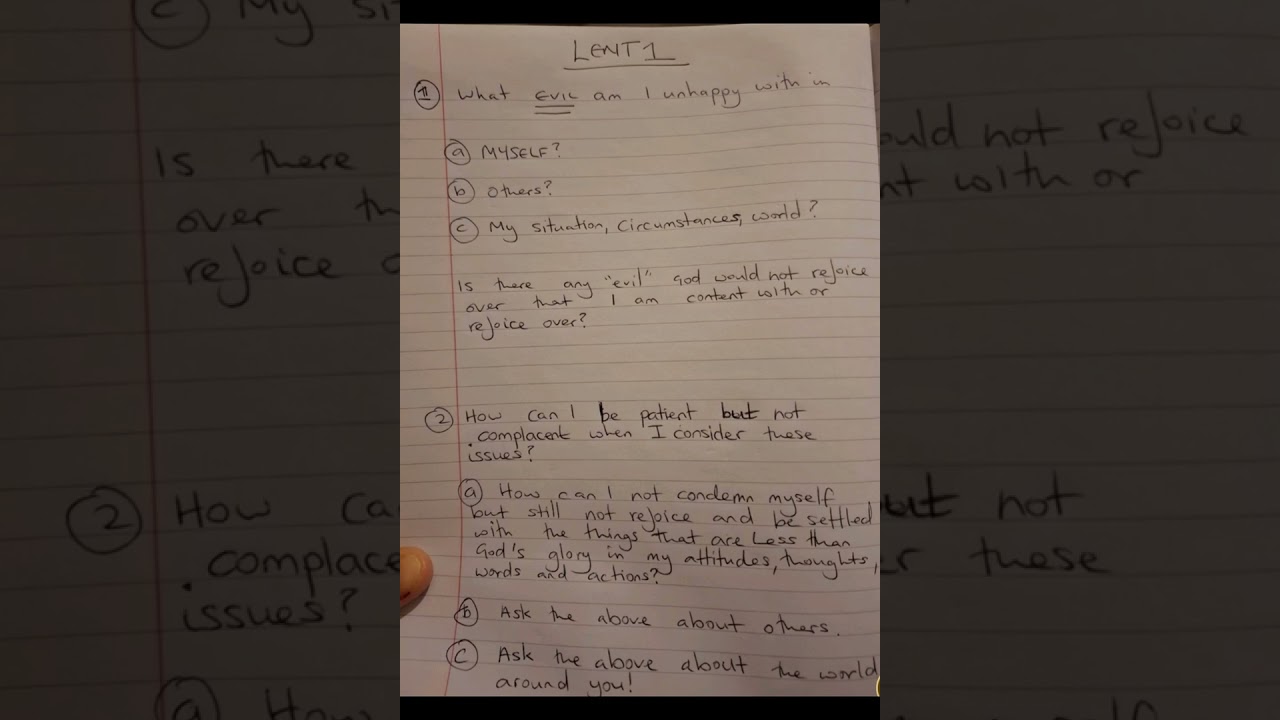 LENT 1
1 What EVIL am I unhappy with in
a MYSELF?
b Others?
c My situation, Circumstances, world?
Is there any "evil" God would not rejoice
over that I am content with or
rejoice over?
2 How can I be patient but not
complacent when I consider these
issues?
a How can I not condemn myself
but still not rejoice and be settled
with the things that are Less than
God's glory in my attitudes, thoughts,
words and actions?
b Ask the above about others.
C Ask the above about the world
around you!